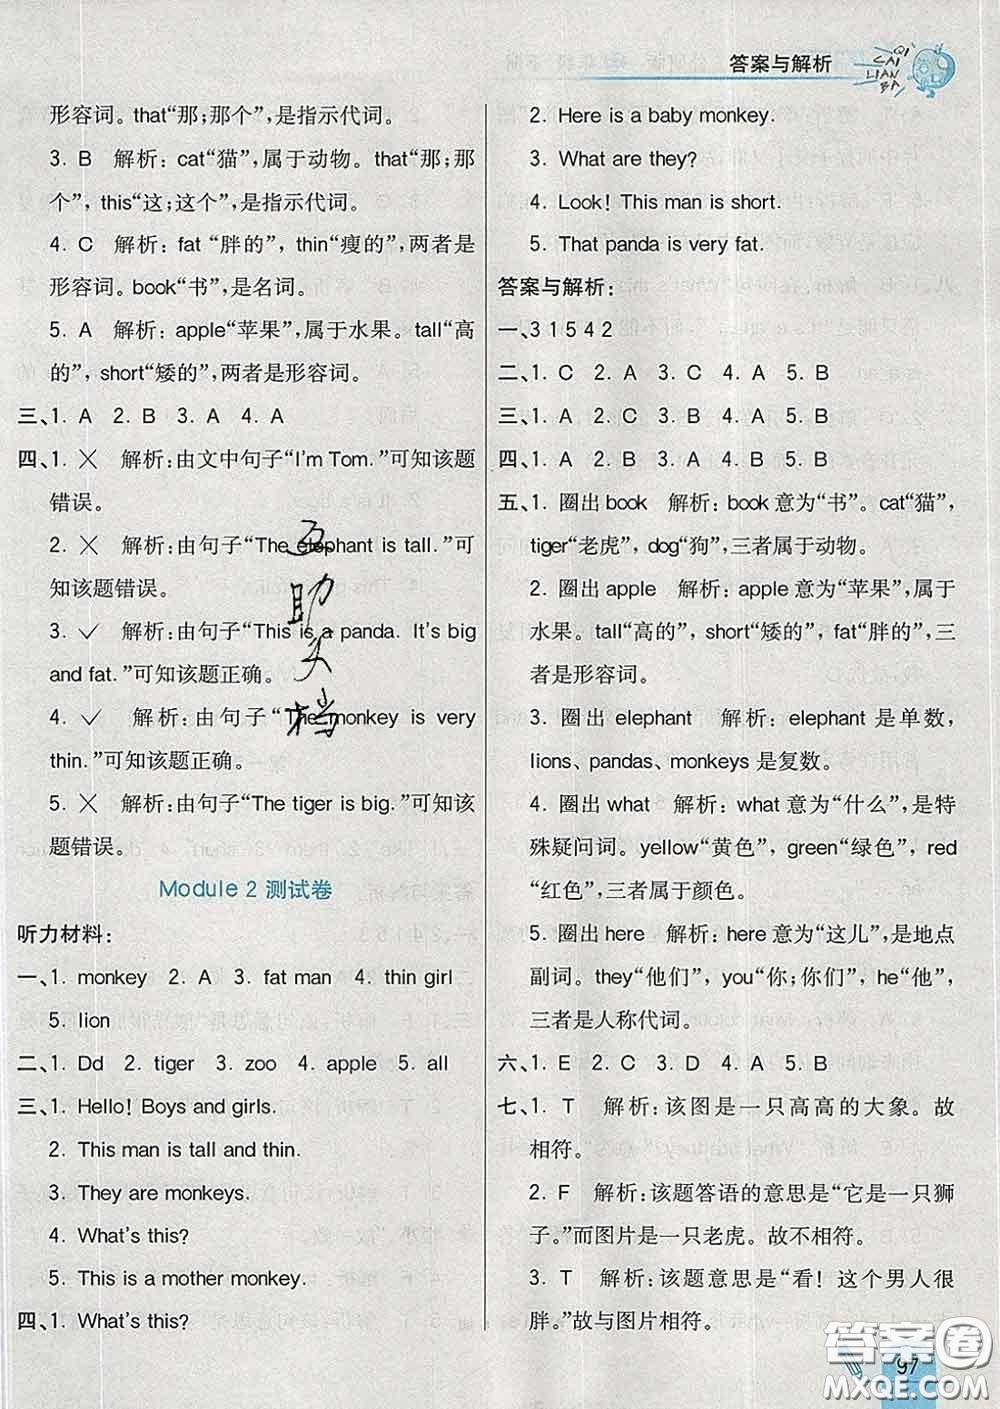 答案与解析
QI
CAI
LIAN
BA
形容词。that“那;那个”,是指示代词。
3. B 解析:cat“猫”,属于动物。that“那;那
个”,this“这;这个”,是指示代词。
4. C 解析:fat “胖的”,thin“瘦的”,两者是
形容词。book“书”,是名词。
5. A 解析:apple“苹果”,属于水果。tall“高
的”,short“矮的”,两者是形容词。
三、1. A 2. B 3. A 4. A
四、1. ✕ 解析:由文中句子“I'm Tom.”可知该题
错误。
2. ✕ 解析:由句子“The elephant is tall.”可
知该题错误。
3. ✓ 解析:由句子“This is a panda. It's big
and fat.”可知该题正确。
4. ✓ 解析:由句子“The monkey is very
thin.”可知该题正确。
5. ✕ 解析:由句子“The tiger is big.”可知该
题错误。
Module 2 测试卷
听力材料:
一、1. monkey 2. A 3. fat man 4. thin girl
5. lion
二、1. Dd 2. tiger 3. zoo 4. apple 5. all
三、1. Hello! Boys and girls.
2. This man is tall and thin.
3. They are monkeys.
4. What's this?
5. This is a mother monkey.
四、1. What's this?
2. Here is a baby monkey.
3. What are they?
4. Look! This man is short.
5. That panda is very fat.
答案与解析:
一、3 1 5 4 2
二、1. C 2. A 3. C 4. A 5. B
三、1. A 2. C 3. B 4. A 5. B
四、1. A 2. B 3. A 4. B 5. B
五、1. 圈出 book 解析:book 意为“书”。cat“猫”,
tiger“老虎”,dog“狗”,三者属于动物。
2. 圈出 apple 解析:apple 意为“苹果”,属于
水果。tall“高的”,short“矮的”,fat“胖的”,三
者是形容词。
3. 圈出 elephant 解析:elephant 是单数,
lions、pandas、monkeys 是复数。
4. 圈出 what 解析:what 意为“什么”,是特
殊疑问词。yellow“黄色”,green“绿色”,red
“红色”,三者属于颜色。
5. 圈出 here 解析:here 意为“这儿”,是地点
副词。they“他们”,you“你;你们”,he“他”,
三者是人称代词。
六、1. E 2. C 3. D 4. A 5. B
七、1. T 解析:该图是一只高高的大象。故
相符。
2. F 解析:该题答语的意思是“它是一只狮
子。”而图片是一只老虎。故不相符。
3. T 解析:该题意思是“看!这个男人很
胖。”故与图片相符。
互助文档
97
答案圈
MXQE.COM